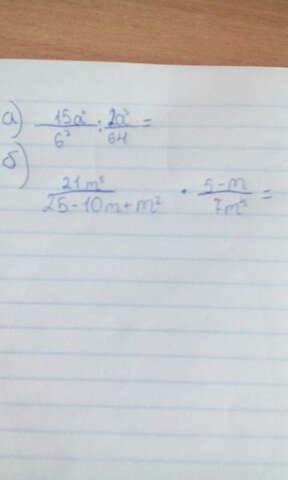 а) 15a² / 6² : 2a² / 64 =
б)
21m⁵ / 25-10m+m² · 5-m / 7m² =